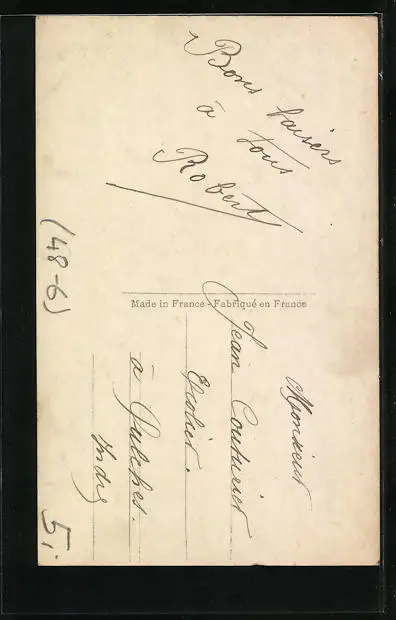 Bons baisers
à tous
Robert
Made in France - Fabriqué en France
Monsieur
Jean Couturier
Ecolier.
à Pulches.
Indre
(48-6)
5,-